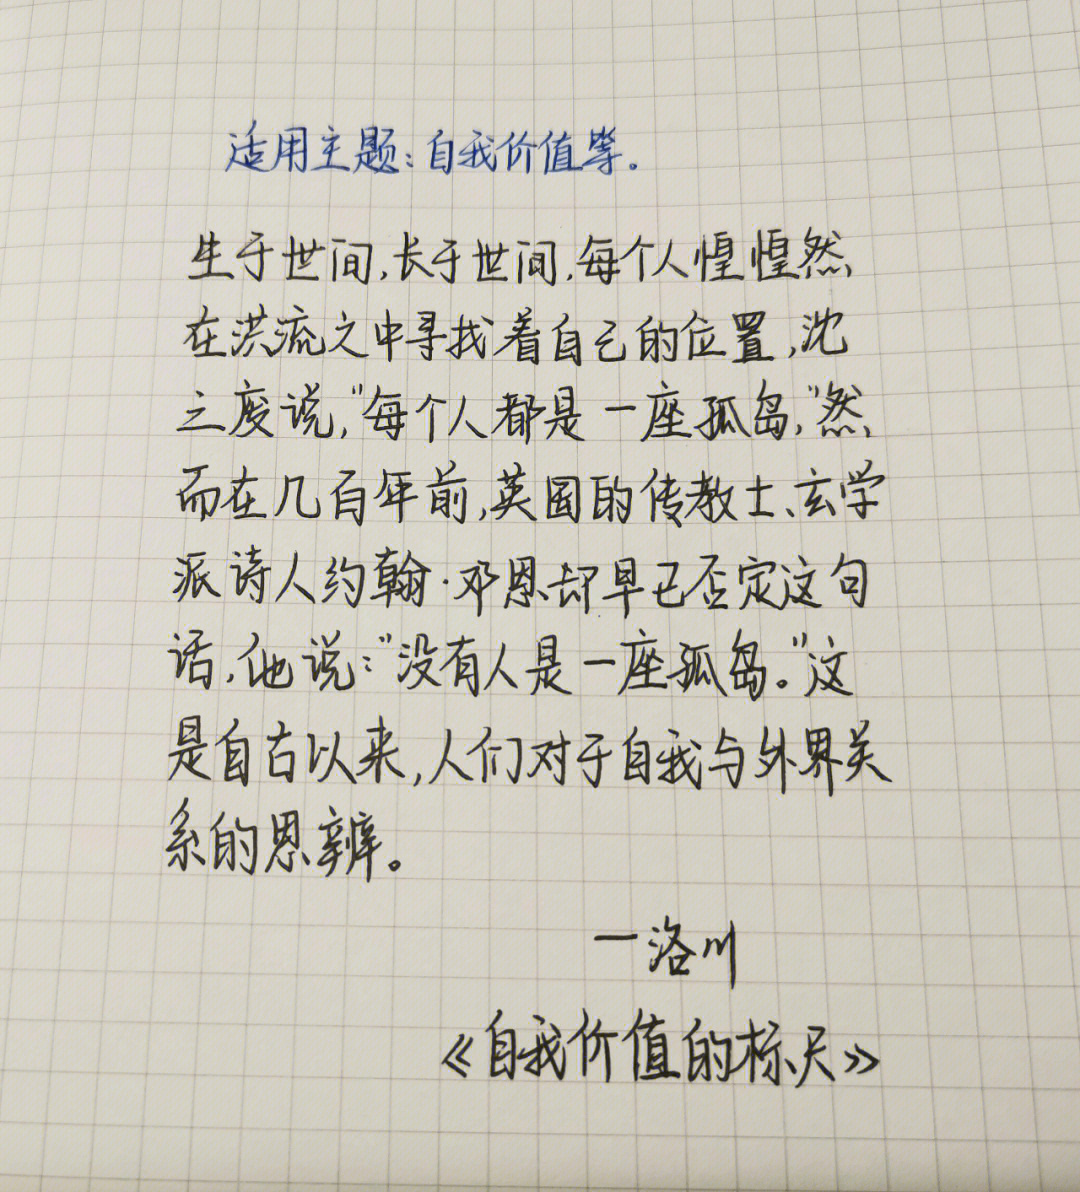 适用主题:自我价值等.
生于世间,长于世间,每个人惶惶然
在洪流之中寻找着自己的位置,沈
之度说,"每个人都是一座孤岛,"然
而在几百年前,英国的传教士、玄学
派诗人约翰·邓恩却早已否定这句
话,他说:"没有人是一座孤岛。"这
是自古以来,人们对于自我与外界关
系的思辨。
—洛川
《自我价值的标尺》